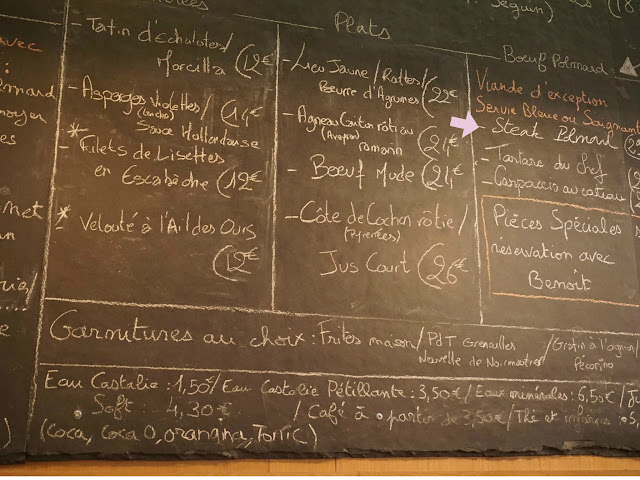 Seguin)
(18
avec
Polmard
moyen
es
- Tatin d'échalotes/
Morcilla (12€
- Asperges Violettes/ (14€
(Landes)
Sauce Hollandaise
* Filets de Lisettes
en Escabèche (12€
* - Velouté à l'Ail des Ours
(12€
Plats
- Lieu Jaune/Rattes/
Beurre d'Agrumes (22€
- Agneau Canton rôti au
(Aveyron) romarin (24€
- Boeuf Mode (21€
- Côte de Cochon rôtie/
(Pyrénées)
Jus Court (26€
Boeuf Polmard
Viande d'exception
Servie Bleue ou Saignante
- Steak Polmard
- Tartare du chef
- Carpaccio au couteau
Pièces Spéciales
reservation avec
Benoit
Garnitures au choix : Frites maison/PdT Grenailles/Gratin à l'oignon/
Nouvelle de Noirmoutier
Pécorino
Eau Castalie : 1,50/Eau Castalie Pétillante : 3,50€/Eaux minérales : 6,50€/
• Soft : 4,30€ /Café à partir de 3,50€/Thé et infusions
(Coca, Coca 0, orangina, Tonic)